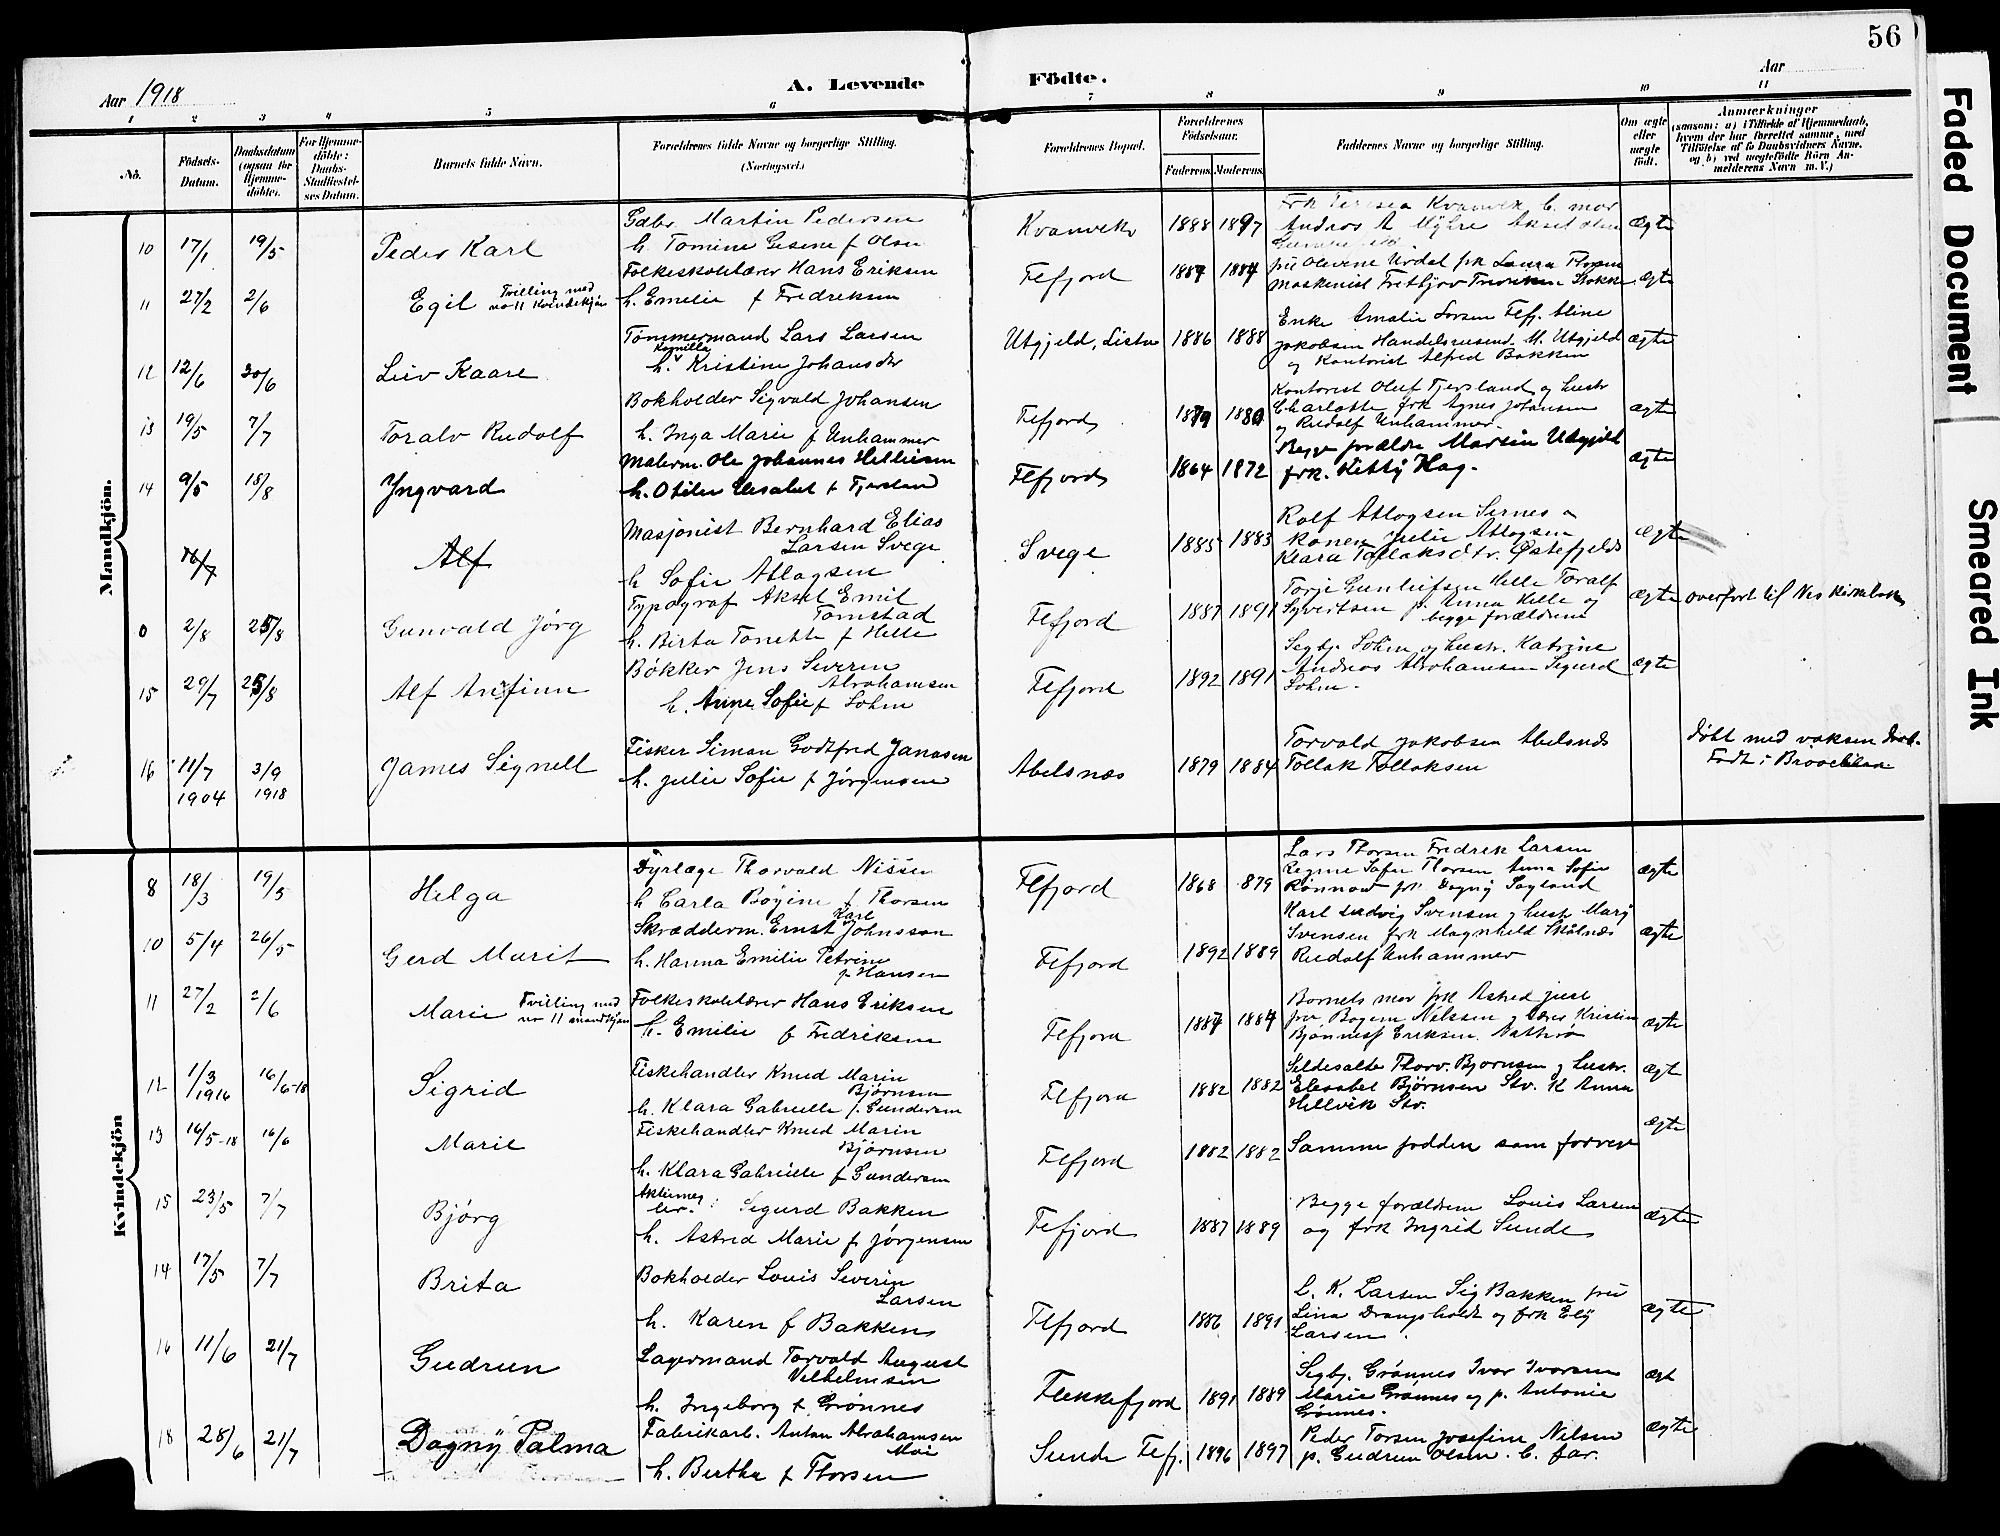 56
Aar 1918
A. Levende Födte.
Aar
1 2 3 4 5 6 7 8 9 10 11
No.
Födsels-Datum.
Daabsdatum (ogsaa for Hjemme-döbte).
For Hjemme-döbte: Daabs-Stadfæstel-ses Datum.
Barnets fulde Navn.
Forældrenes fulde Navne og borgerlige Stilling. (Næringsvei.)
Forældrenes Bopæl.
Forældrenes Födselsaar.
Faderens. Moderens.
Faddernes Navne og borgerlige Stilling.
Om ægte eller uægte födt.
Anmærkninger
(saasom: a) i Tilfælde af Hjemmedaab, hvem der har forrettet samme, med Tilföielse af to Daabsvidners Navne. og b) ved uægtefödte Börn An-melderens Navn m. V.)
Mandkjön.
10 17/1 19/5 Peder Karl
Gdbr Martin Pedersen
h. Tomine Gesene f Olsen
Kvanvek 1888 1897
Frk Teresea Kvanvik b. mor
Andreas A Myhre Aksel Olsen
ægte
11 27/2 2/6 Egil Tvilling med no 11 Kvindekjøn
Folkeskolelærer Hans Eriksen
h. Emelie f Fredriksen
Flefjord 1887 1884
fru Olevine Urdal frk Laura Thorsen
maskinist Fritjov Stokke
ægte
12 12/6 30/6 Leiv Kaare
Tømmermand Lars Larsen
h. Kristine Johansdtr
Utgjeld, Lista 1886 1888
Enke Amalie Larsen Flefj. Aline
Jakobsen Handelsreisend. M. Utgjeld
og Kontorist Alfred Bakken
ægte
13 19/5 7/7 Toralv Rudolf
Bokholder Sigvald Johansen
h. Inga Marie f Unhammer
Flefjord 1879 1880
Kontorist Oluf Tjersland og hustr
Charlotte frk Agnes Johansen
og Rudolf Unhammer.
ægte
14 9/5 18/8 Yngvard
Malerm. Ole Johannes Helliesen
h. Otilie Elesabet f Tjersland
Flefjord 1864 1872
Begge forældre Martin Udgjeld
frk. Kitty Hag.
ægte
16/7 Alf
Masjonist Bernhard Elias
Larsen Svege
h Sofie Atlogsen
Svege 1885 1883
Rolf Atlogsen Sirnes o
konen Julie Atlogsen
Klara Tollaksdtr. Østefjeld
ægte
0 2/8 25/8 Gunvald Jørg
Typograf Aksel Emil
Tomstad
h. Birta Tonette f Helle
Flefjord 1887 1891
Torje Gunleifsen Helle Toralf
Syvertsen p. Anna Helle og
begge forældrene
ægte overført til Nes Kirkebok
15 29/7 25/8 Alf Arnfinn
Bøkker Jens Severin
Abrahamsen
h. Anne Sofie f Lohm
Flefjord 1892 1891
Segbj. Lohm og hustr. Katrine
Andreas Abrahamsen Sigurd
Lohm.
ægte
16 11/7 1904 3/9 1918 James Signell
Fisker Siman Godtfred Janasen
h. Julie Sofie f Jørgensen
Abelsnæs 1879 1884
Torvald Jakobsen Abelsnæs
Tollak Tollaksen
Døbt med voksen Daab.
Født i Brooeklen
Kvindekjön
8 18/3 19/5 Helga
Dyrlæge Thorvald Nissen
h Carla Bøgine f Thorsen
Flefjord 1868 879
Lars Thorsen Fredrik Larsen
Regine Sofie Thorsen Anna Sofie
Rønnow frk Dagny Sagland
ægte
10 5/4 26/5 Gerd Marit
Skrædderm. Ernst Karl Johnsson
h. Hanna Emilie Petrine
f Hansen
Flefjord 1892 1889
Karl Ludvig Svensen og hust Mary
Svensen frk Magnhild Skålnæs
Rudolf Unhammer
ægte
11 27/2 2/6 Marie Tvilling med no 11 mandkjøn
Folkeskolelærer Hans Eriksen
h. Emilie f Fredriksen
Flefjord 1887 1884
Barnets mor frk Astrid Juel
fru Bogem Nilssen og lærer Kristin
Bjønnesf Eriksen
ægte
12 1/3 1916 16/6-18 Sigrid
Fiskehandler Knud Marin
Bjørnsen
h. Klara Gabrielle f. Gundersen
Flefjord 1882 1882
Sildesalte Thorv. Bjørnsen og hustr.
Elesabet Bjørnsen Stv. K Anna
Hellvik Stv.
ægt
13 16/5-18 16/6 Marie
Fiskehandler Knud Marin
Bjørnsen
h. Klara Gabrielle f Gundersen
Flefjord 1882 1882
Samme faddere som forrege
ægte
15 23/5 7/7 Bjørg
Sigurd Bakken
h. Astrid Marie f Jørgensen
Flefjord 1887 1889
Begge forældrene Louis Larsen
og frk Ingrid Sunde
ægte
14 17/5 7/7 Brita
Bokholder Louis Severin
Larsen
h. Karen f Bakken
Flefjord 1886 1891
L. K. Larsen Sig Bakken fru
Lina Drangsholdt og frk Ely
Larsen.
ægte
16 11/6 21/7 Gudrun
Lagermand Torvald August
Velhelmsen
h. Ingeborg f Grønnes
Flekkefjord 1891 1889
Segbj. Grønnes Ivar Ivarsen
Marie Grønnes og p. Antonie
Grønnes.
ægt
18 28/6 21/7 Dagny Palma
Fabrikarb. Anton Abrahamsen
Moi
h. Berthe f Thorsen
Sunde Flefj. 1896 1897
Peder Torsen Josefine Nilsen
p. Gudrun Olsen. b. far.
ægte
Faded Document
Smeared Ink